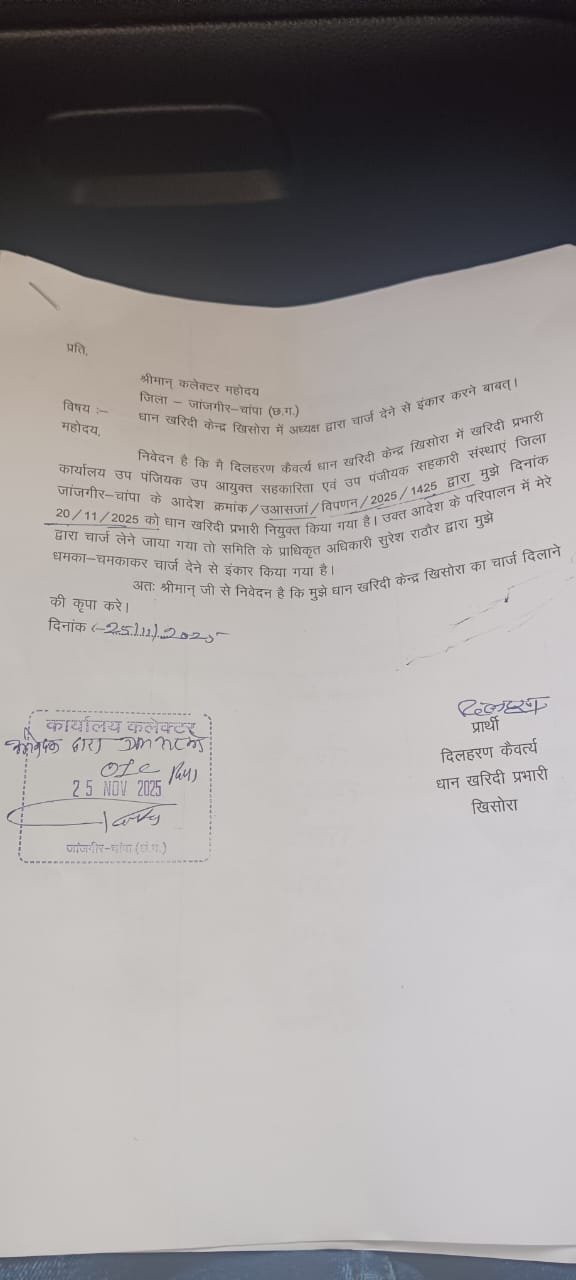 प्रति,
श्रीमान् कलेक्टर महोदय
जिला – जांजगीर–चांपा (छ.ग.)
विषय :– धान खरिदी केन्द्र खिसोरा में अध्यक्ष द्वारा चार्ज देने से इंकार करने बाबत्।
महोदय,
निवेदन है कि मै दिलहरण कैवर्त्य धान खरिदी केन्द्र खिसोरा में खरिदी प्रभारी
कार्यालय उप पंजियक उप आयुक्त सहकारिता एवं उप पंजीयक सहकारी संस्थाएं जिला
जांजगीर–चांपा के आदेश क्रमांक/उआसजां/विपणन/2025/1425 द्वारा मुझे दिनांक
20/11/2025 को धान खरिदी प्रभारी नियुक्त किया गया है। उक्त आदेश के परिपालन में मेरे
द्वारा चार्ज लेने जाया गया तो समिति के प्राधिकृत अधिकारी सुरेश राठौर द्वारा मुझे
धमका–चमकाकर चार्ज देने से इंकार किया गया है।
अतः श्रीमान् जी से निवेदन है कि मुझे धान खरिदी केन्द्र खिसोरा का चार्ज दिलाने
की कृपा करे।
दिनांक :–25/11/2025
दिलहरण
प्रार्थी
दिलहरण कैवर्त्य
धान खरिदी प्रभारी
खिसोरा
कार्यालय कलेक्टर
द्वारा
OIC
25 NOV 2025
जांजगीर–चांपा (छ.ग.)